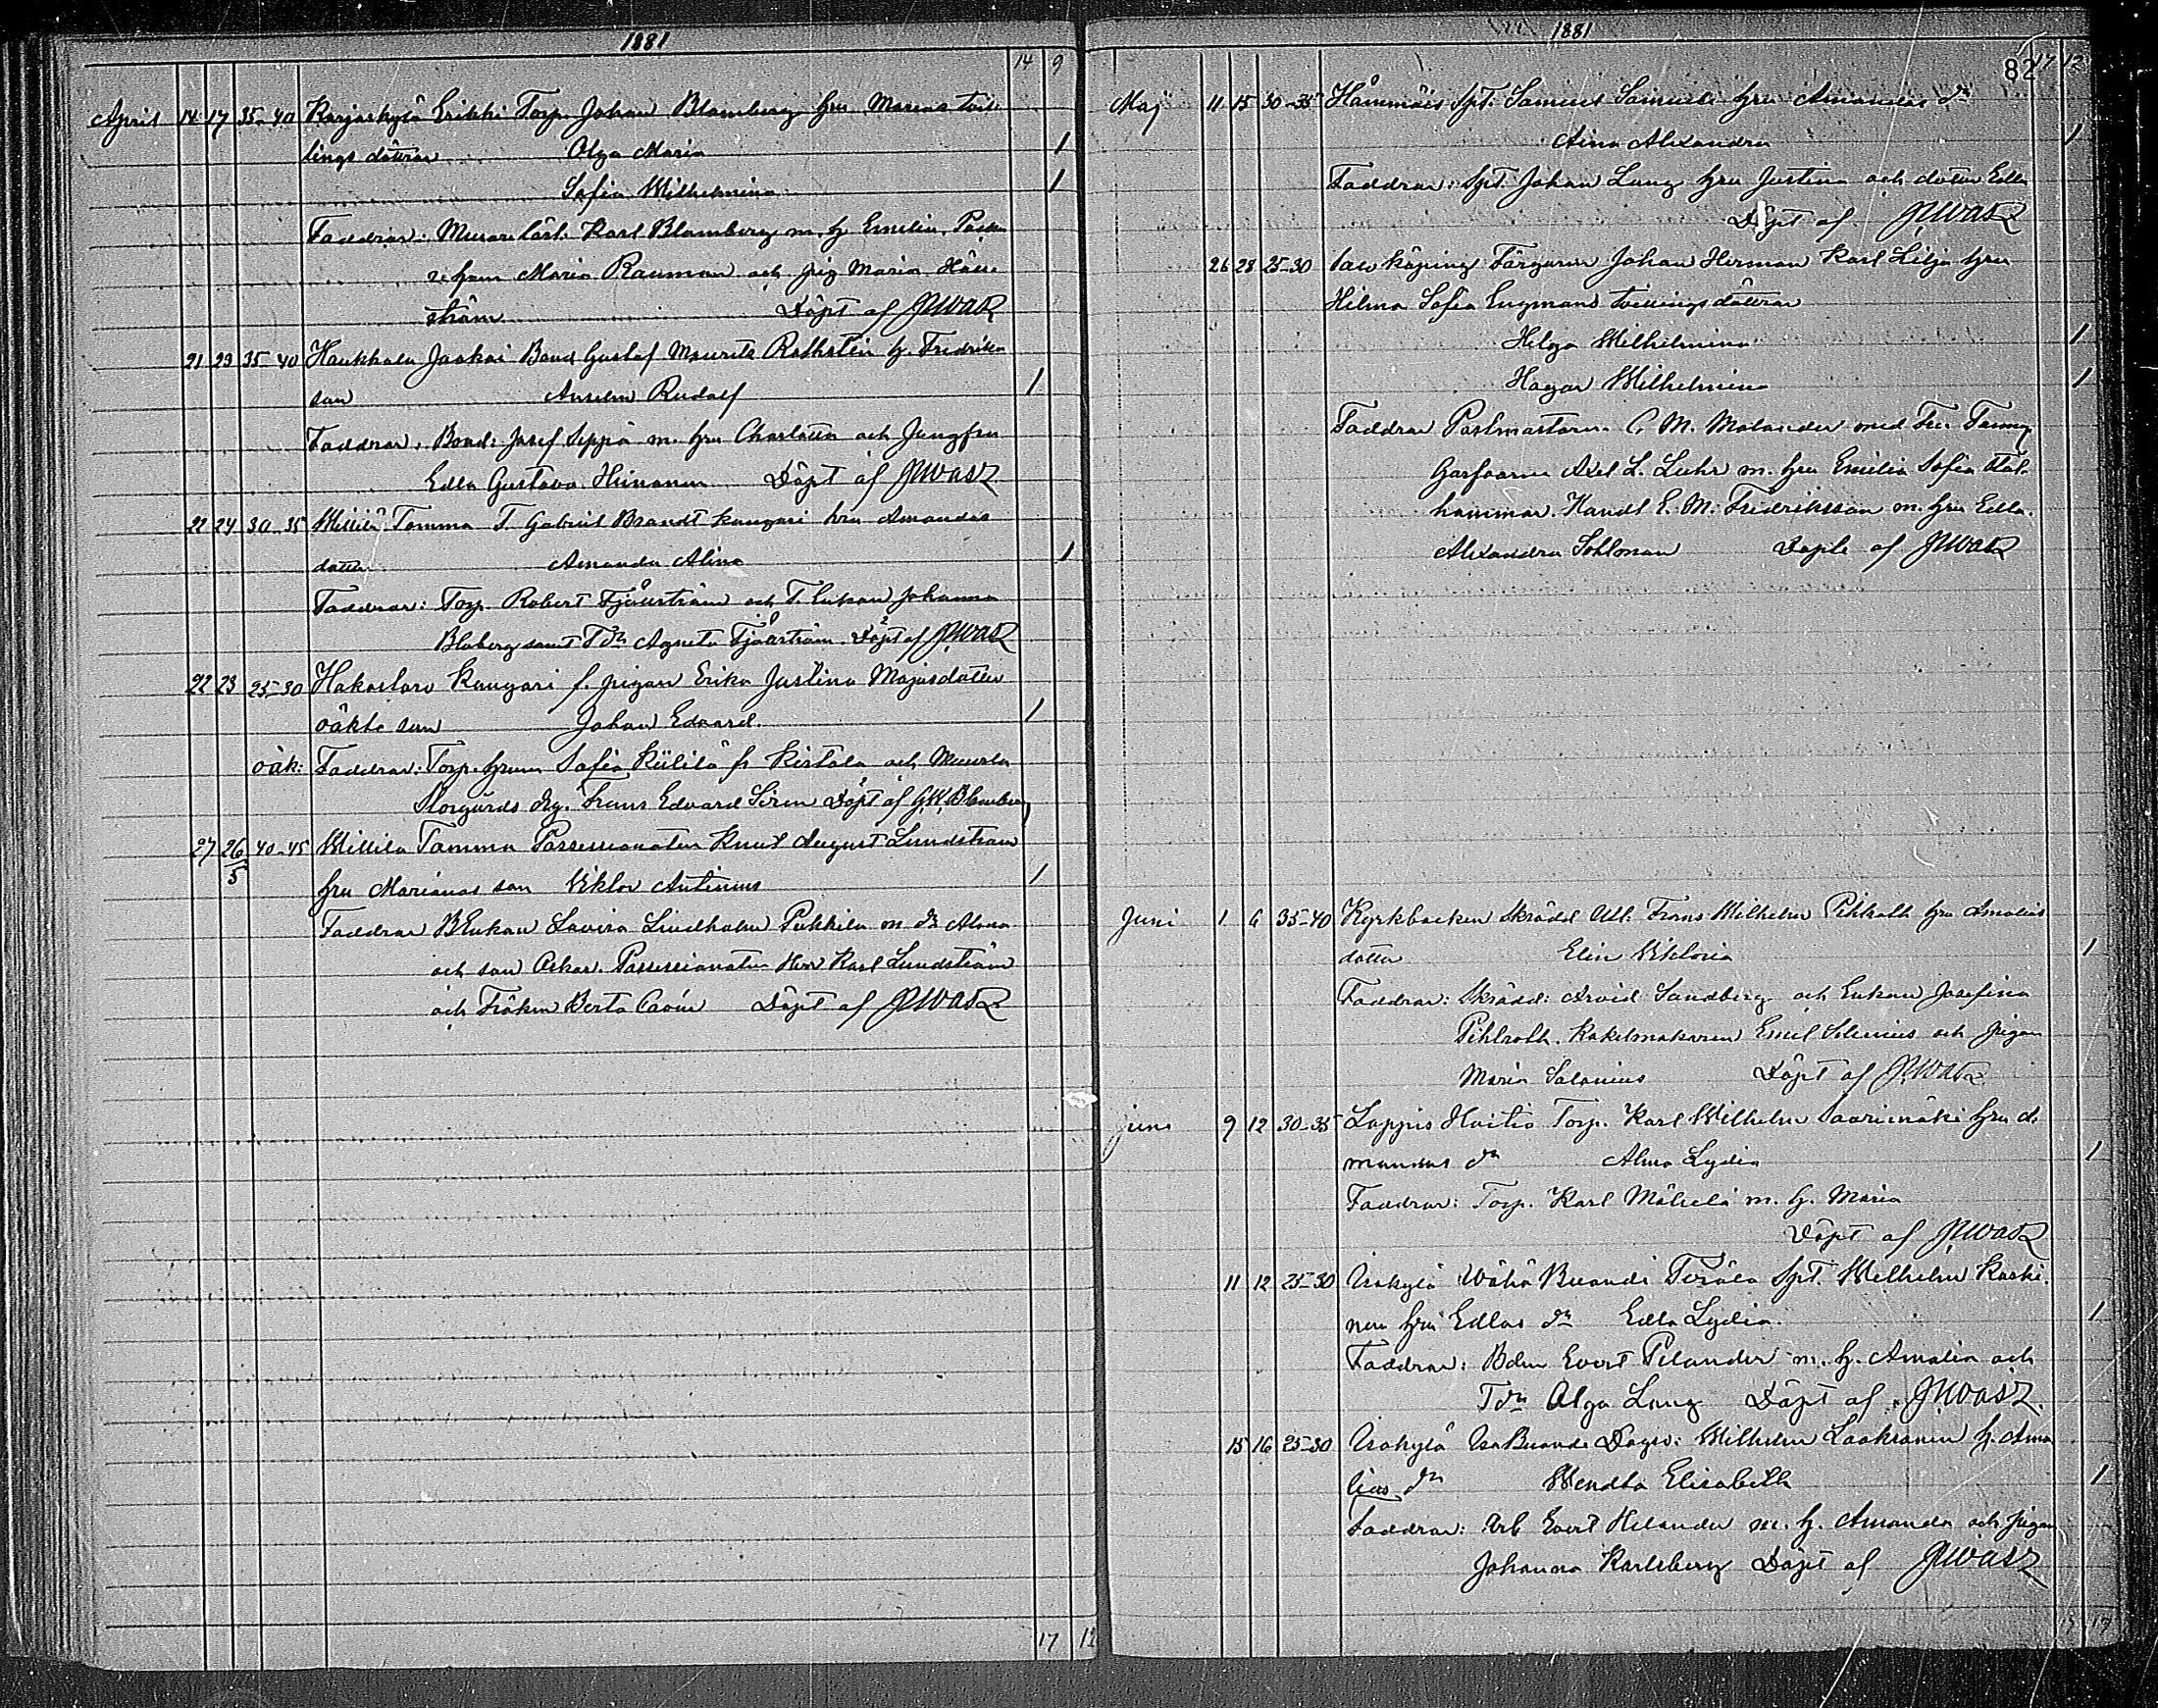 1881
14 9
April 14 17 35-40 Karjaskylä Erikki Torp. Johan Blomberg hru Marias tvil-
lings döttrar Olga Maria 1
Sofia Wilhelmina 1
Faddrar: Murarelärl. Karl Blomberg m. h. Emelia,
Maria Rauman och pig Maria
ström Döpt af JWasz
21 23 35-40 Haukkala Jaakoi Bond Gustaf Maurits Rothstén h. Fredrika
son Anselm Rudolf 1
Faddrar. Bond: Josef Seppä m. hru Charlotta och Jungfru
Edla Gustava Heinonen Döpt af JWasz
22 24 30-35 Willilä Tomma T. Gabriel Brandt Kangari hru Amandas
dotter Amanda Alina 1
Faddrar: Torp. Robert Fjäderström och T. Enkan Johanna
Bloberg samt T dr Agneta Fjäderström. Döpt af JWasz
22 23 25-30 Hakastaro Kangari f. pigan Erika Justina Majasdotter
oäkta son Johan Edvard. 1
oäk: Faddrar: Torp. hrun Sofia Kiililä fr Kistola och Muurla
Storgårds drg. Frans Edvard Siren Döpt af G.W. Blomberg
27 26/5 40-45 Willila Tamma Possessionaten Knut August Lundström
hru Marianas son Viktor Antinius 1
Faddrar BEnkan Lovisa Lindholm Pukkila m. dr Alma
och son Oskar. Possessionaten Herr Karl Lundström
och Fröken Berta Döpt af JWasz
17 12
1881
82 17 12
Maj 11 15 30-35 Håmmäis Spt: Samuel Samueli hru Amandas dr
Aina Alexandra 1
Faddrar: Spt. Johan Lung hru Justina och dotter Edla
Döpt af JWasz
26 28 25-30 Salo köping Färgaren Johan Herman Karl Lilja hru
Hilma Sofia Engmans tvillingsdöttrar
Helga Wilhelmina 1
Hagar Wilhelmina 1
Faddrar Postmästaren C. M. Molander med Fru Fanny
Garfvaren Axel L. Luhr m. hru Emilia Sofia
hammar. Handl E. M. Fredriksson m. hru Edla
Alexandra Sohlman Döpte af JWasz
Juni 1 6 35-40 Kyrkbacken Skrädd Frans Wilhelm Pihlroth hru Amalias
dotter Elin Viktoria 1
Faddrar: Skrädd: Arvid Sandberg och Enkan Josefina
Pihlroth. Kakelmakaren Emil Selenius och pigan
Maria Salonius Döpt af JWasz
juni 9 12 30-35 Lappis Haitio Torp. Karl Wilhelm Saarimäki hru A-
mandas dr Alma Lydia 1
Faddrar: Torp. Karl Mäkelä m. h. Maria
Döpt af JWasz
11 12 25-30 Isokylä Wähä Ruandi Terälä Spt. Wilhelm Koski-
nen hru Edlas dr Edla Lydia. 1
Faddrar: Bdn Evert Pelander m. h. Amalia och
T dr Olga Lung Döpt af JWasz
15 16 25-30 Isokylä Iso Ruande Dagsv: Wilhelm Laaksonen h. Ama
lias dr Wendla Elisabeth 1
Faddrar: Arb Evert Helander m. h. Amanda och pigan
Johanna Karlsberg Döpt af JWasz